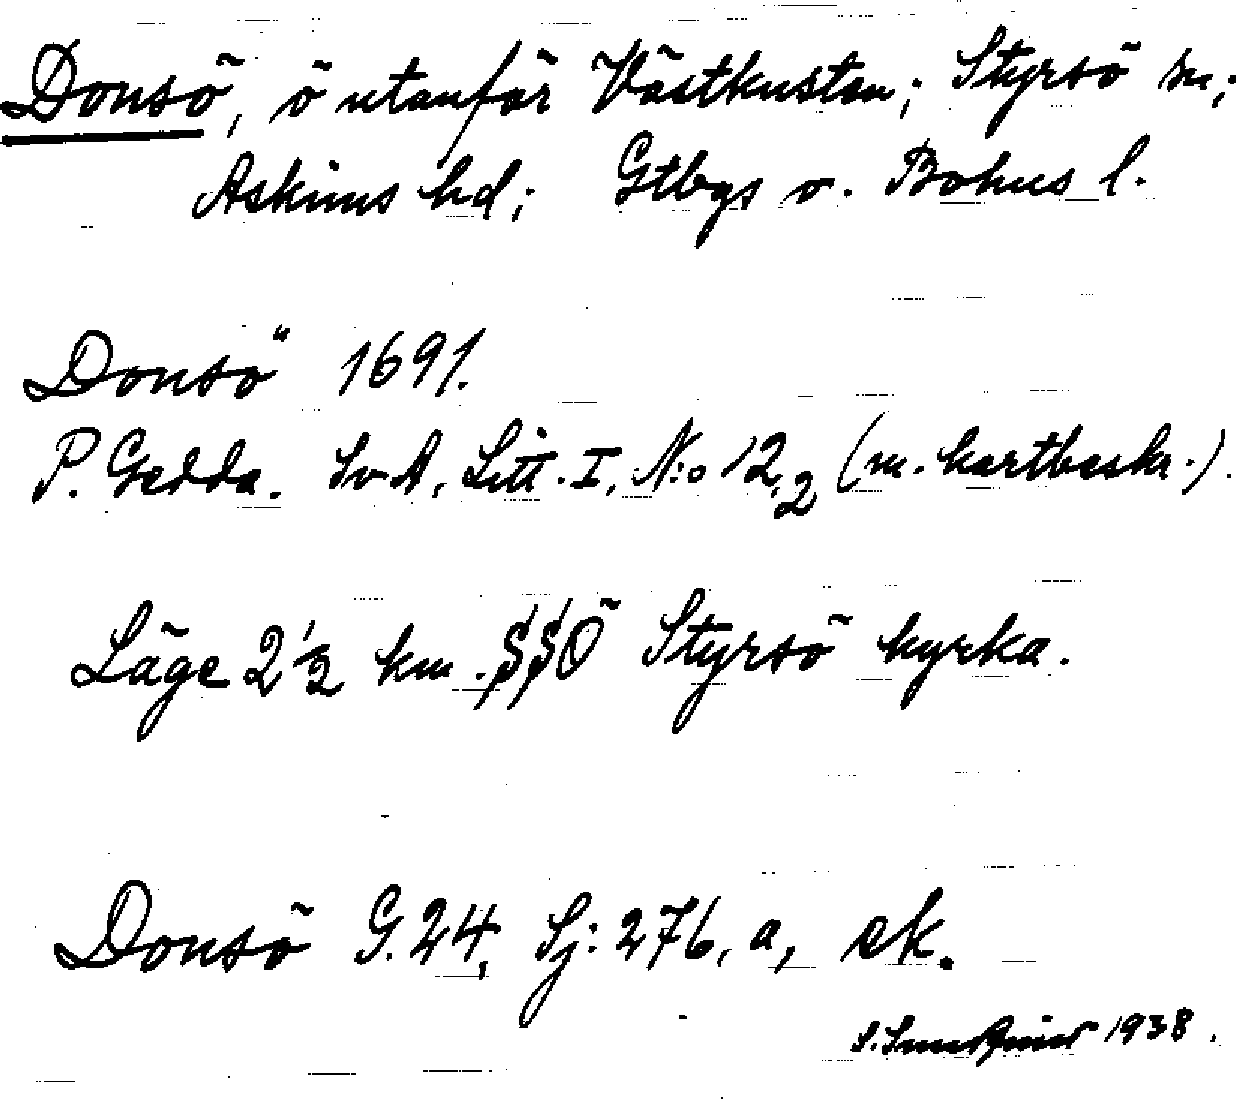 Donsö, ö utanför Västkusten; Styrsö sn;
Askims hd; Gtbgs o. Bohus l.
Donsö 1691.
P. Gedda. SvA, Litt. I, N:o 12,2 (m. kartbeskr.).
Läge 2 1/2 km. SSÖ Styrsö kyrka.
Donsö G. 24, Sj: 276, a, ek.
1938.